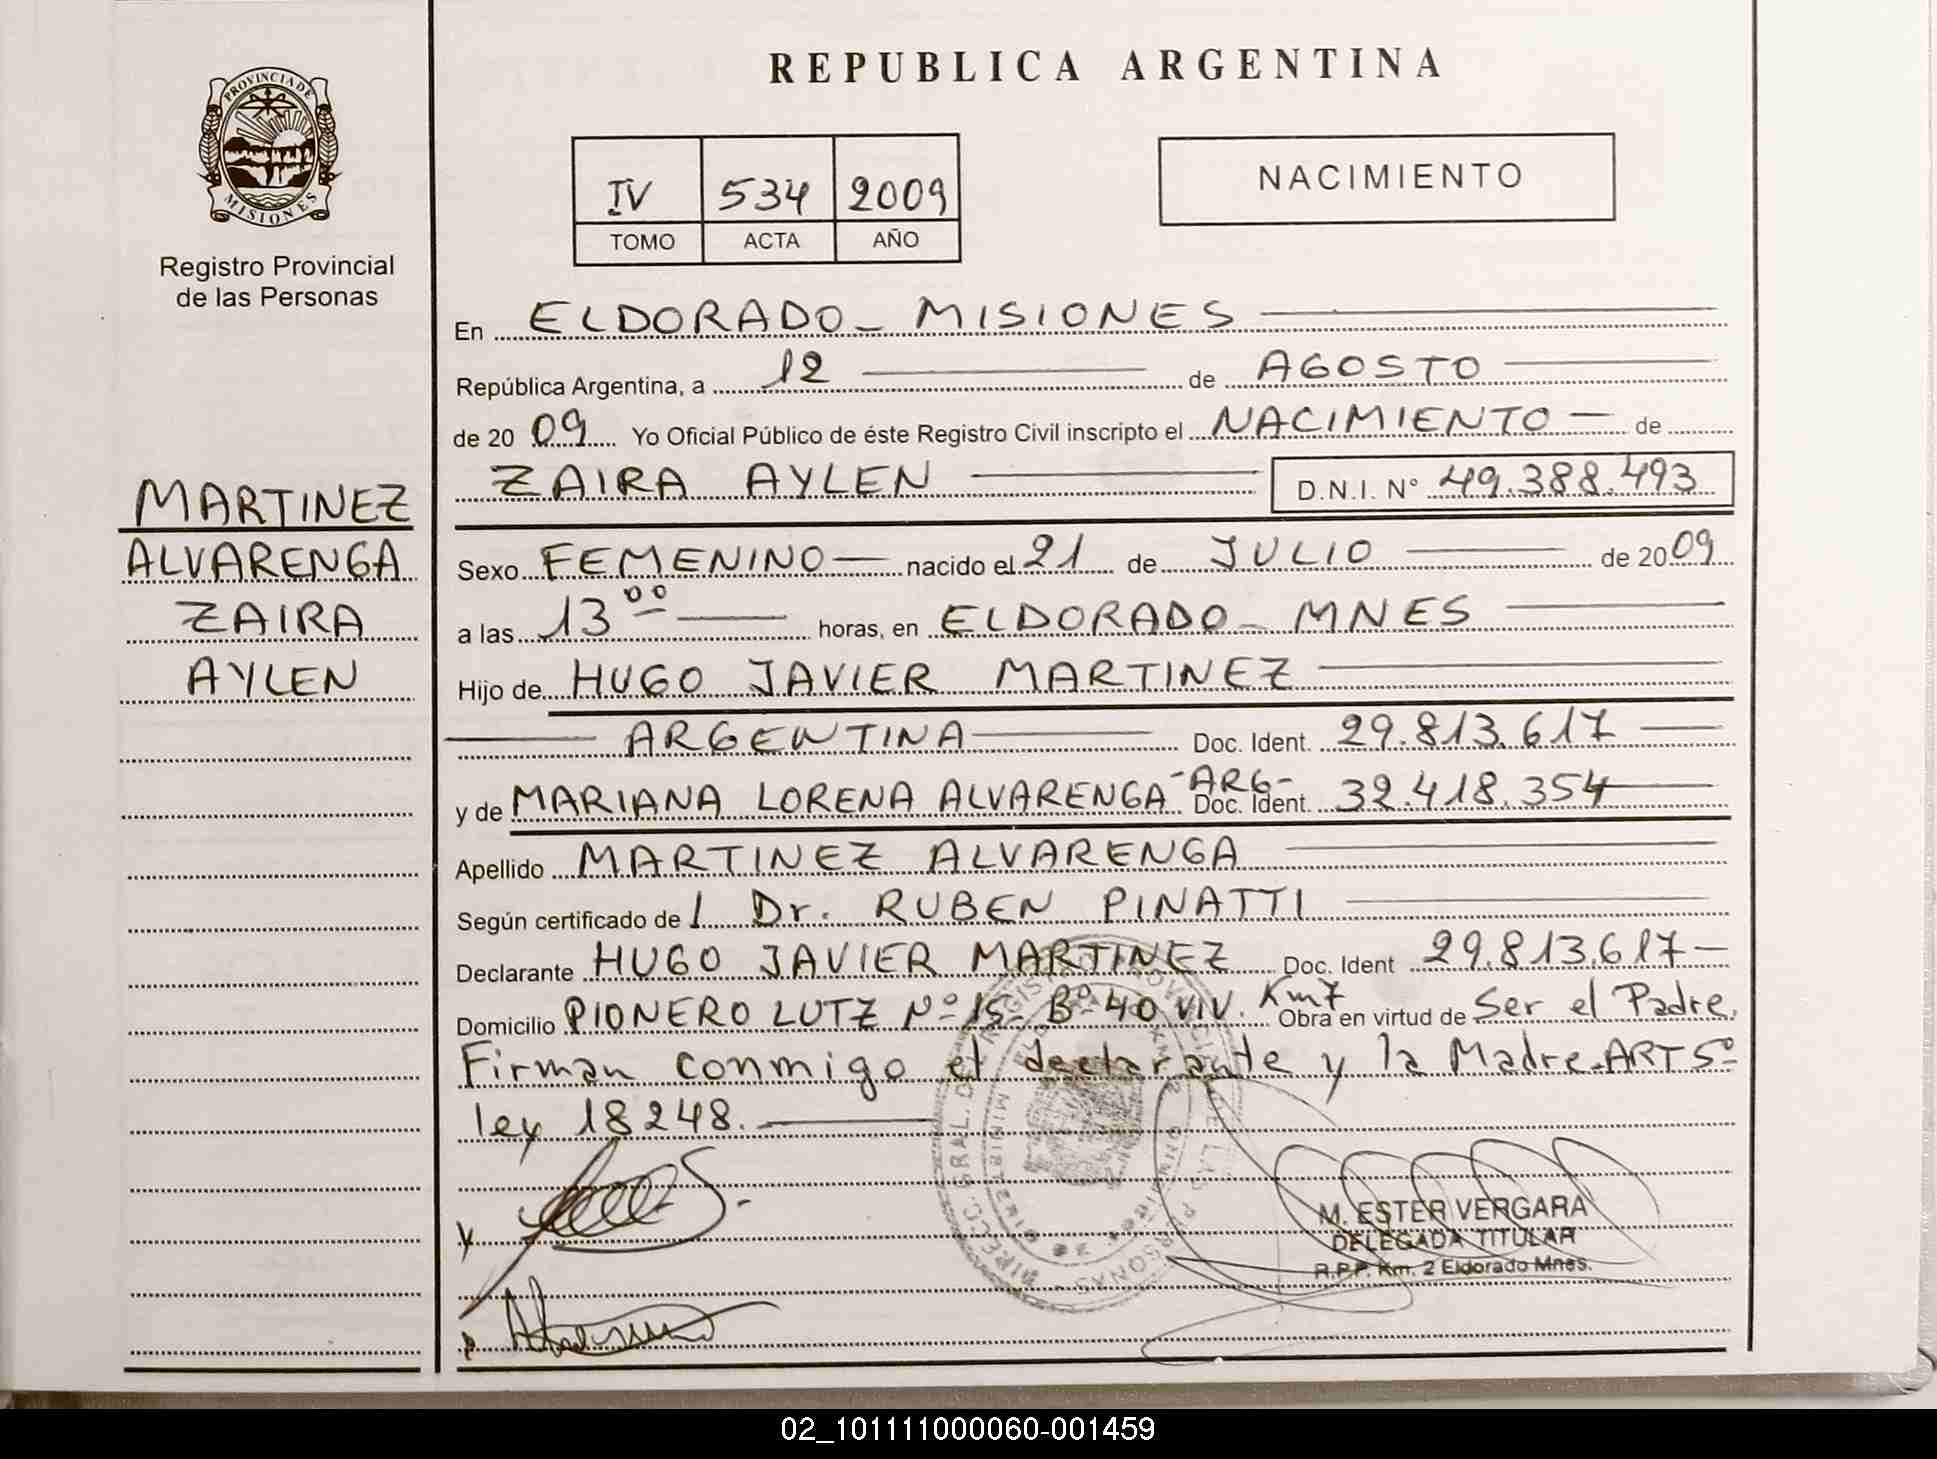 REPUBLICA ARGENTINA
PROVINCIA DE
MISIONES
Registro Provincial
de las Personas
IV 534 2009
TOMO ACTA AÑO
NACIMIENTO
MARTINEZ
ALVARENGA
ZAIRA
AYLEN
En ELDORADO - MISIONES
República Argentina, a 12 de AGOSTO
de 20 09 Yo Oficial Público de éste Registro Civil inscripto el NACIMIENTO de
ZAIRA AYLEN D.N.I. N° 49.388.493
Sexo FEMENINO nacido el 21 de JULIO de 20 09
a las 13 00 horas, en ELDORADO - MNES
Hijo de HUGO JAVIER MARTINEZ
ARGENTINA Doc. Ident. 29.813.617
y de MARIANA LORENA ALVARENGA - ARG - Doc. Ident. 32.418.354
Apellido MARTINEZ ALVARENGA
Según certificado de l Dr. RUBEN PINATTI
Declarante HUGO JAVIER MARTINEZ Doc. Ident 29.813.617
Domicilio PIONERO LUTZ Nº 15 - Bº 40 VIV. Km 7 Obra en virtud de Ser el Padre.
Firman conmigo el declarante y la Madre. ART 5º
ley 18248.
M. ESTER VERGARA
DELEGADA TITULAR
R.P.P. Km. 2 Eldorado Mnes.
02_101111000060-001459